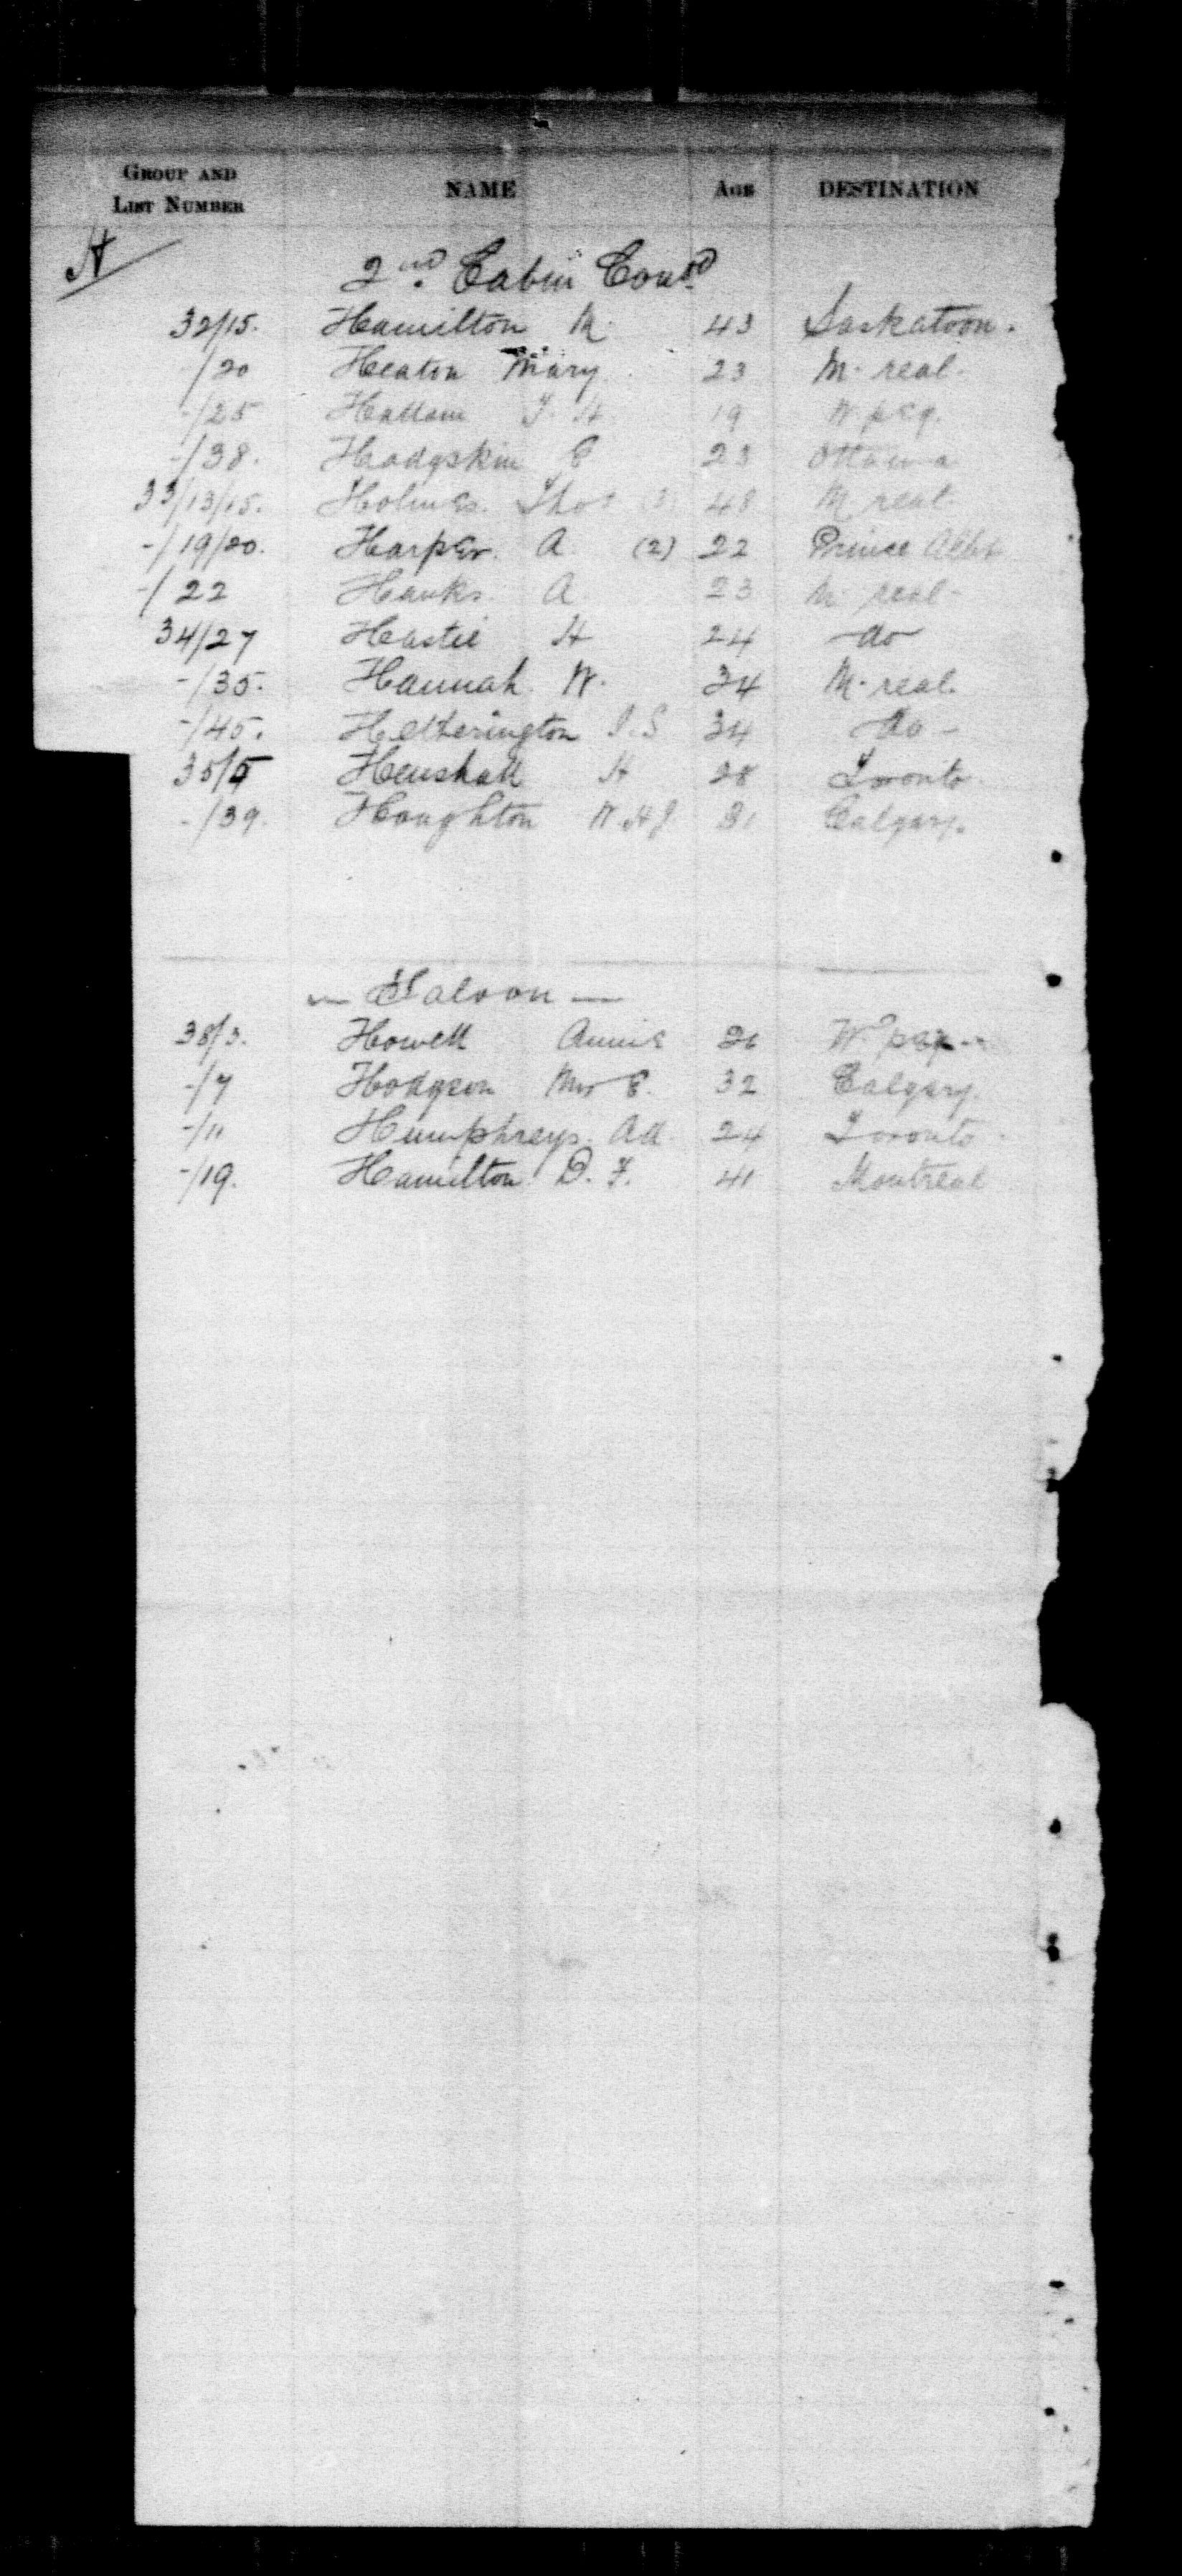 GROUP AND LIST NUMBER NAME AGE DESTINATION
H
2nd Cabin Contd
32/15. Hamilton M. 43 Saskatoon.
-/20 Heaton Mary 23 M-real-
-/25 Hallam J. H 19 W peg.
-/38. Hodgskin E 23 Ottawa
33/13/15. Holmes. Thos (3) 48 M real-
-/19/20. Harper. A. (2) 22 Prince Albt
-/22 Hanks. A. 23 M-real-
34/27 Hastie H 24 do
-/35. Hannah. W. 34 M-real.
-/45. Hetherington J.S 34 do-
35/5 Henshall H 28 Toronto
-/39. Houghton W.H.J. 31 Calgary.
— Saloon —
38/3. Howell Annie 26 W. peg-
-/7 Hodgson Mrs E. 32 Calgary.
-/11 Humphreys. 24 Toronto.
-/19. Hamilton D. F. 41 Montreal